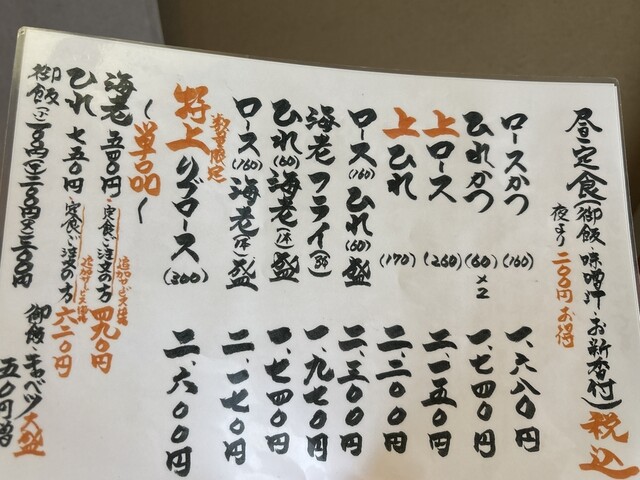 昼定食(御飯・味噌汁・お新香付)税込
夜より二〇〇円お得
ロースかつ(160) 一、六八〇円
ひれかつ(60)×2 一、七四〇円
上ロース(260) 二、一五〇円
上ひれ(170) 二、二〇〇円
ロース(160)ひれ(60)盛 二、三〇〇円
海老フライ(3本) 一、九七〇円
ひれ(60)海老(1本)盛 一、七四〇円
ロース(160)海老(1本)盛 二、一七〇円
数量限定
特上リブロース(300) 二、六〇〇円
〜単品〜
海老 五四〇円・定食ご注文の方 四九〇円
追加サービス価格
ひれ 七五〇円 定食ご注文の方 六二〇円
追加サービス価格
御飯(小)一〇〇円(中)二〇〇円(大)三〇〇円
御飯・キャベツ大盛
五〇円増